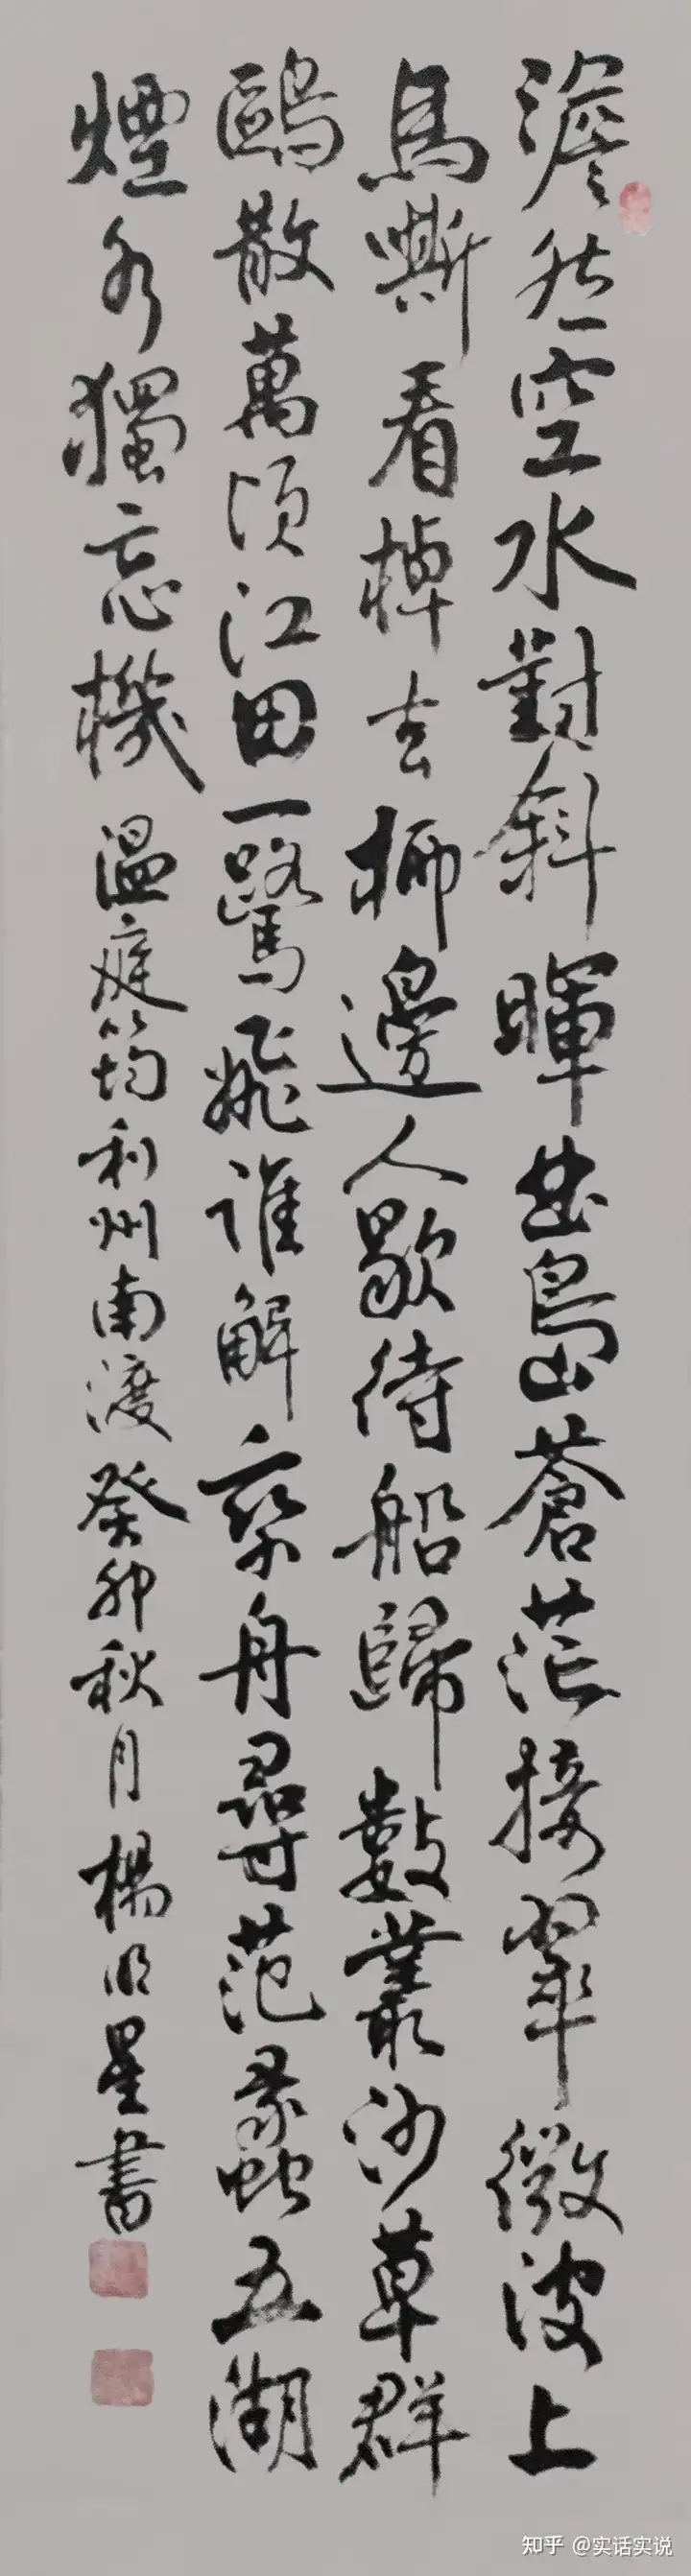 澹然空水對斜暉曲島蒼茫接翠微波上
馬嘶看棹去柳邊人歇待船歸數叢沙草群
鷗散萬頃江田一鷺飛誰解乘舟尋范蠡五湖
煙水獨忘機 溫庭筠利州南渡癸卯秋月楊明星書
知乎 @实话实说